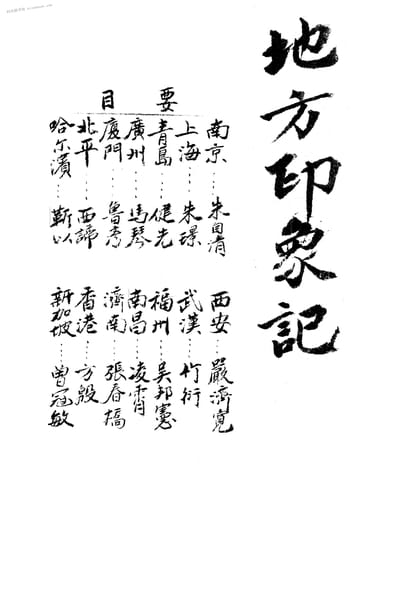 地方印象記
要目
南京……朱自清
上海……朱璟
青島……健光
廣州……馬琴
廈門……魯彥
北平……西諦
哈尔濱……靳以
西安……嚴濟寬
武漢……竹衍
福州……吳邦憲
南昌……凌霄
濟南……張春橋
香港……方殷
新加坡……曾冠敏